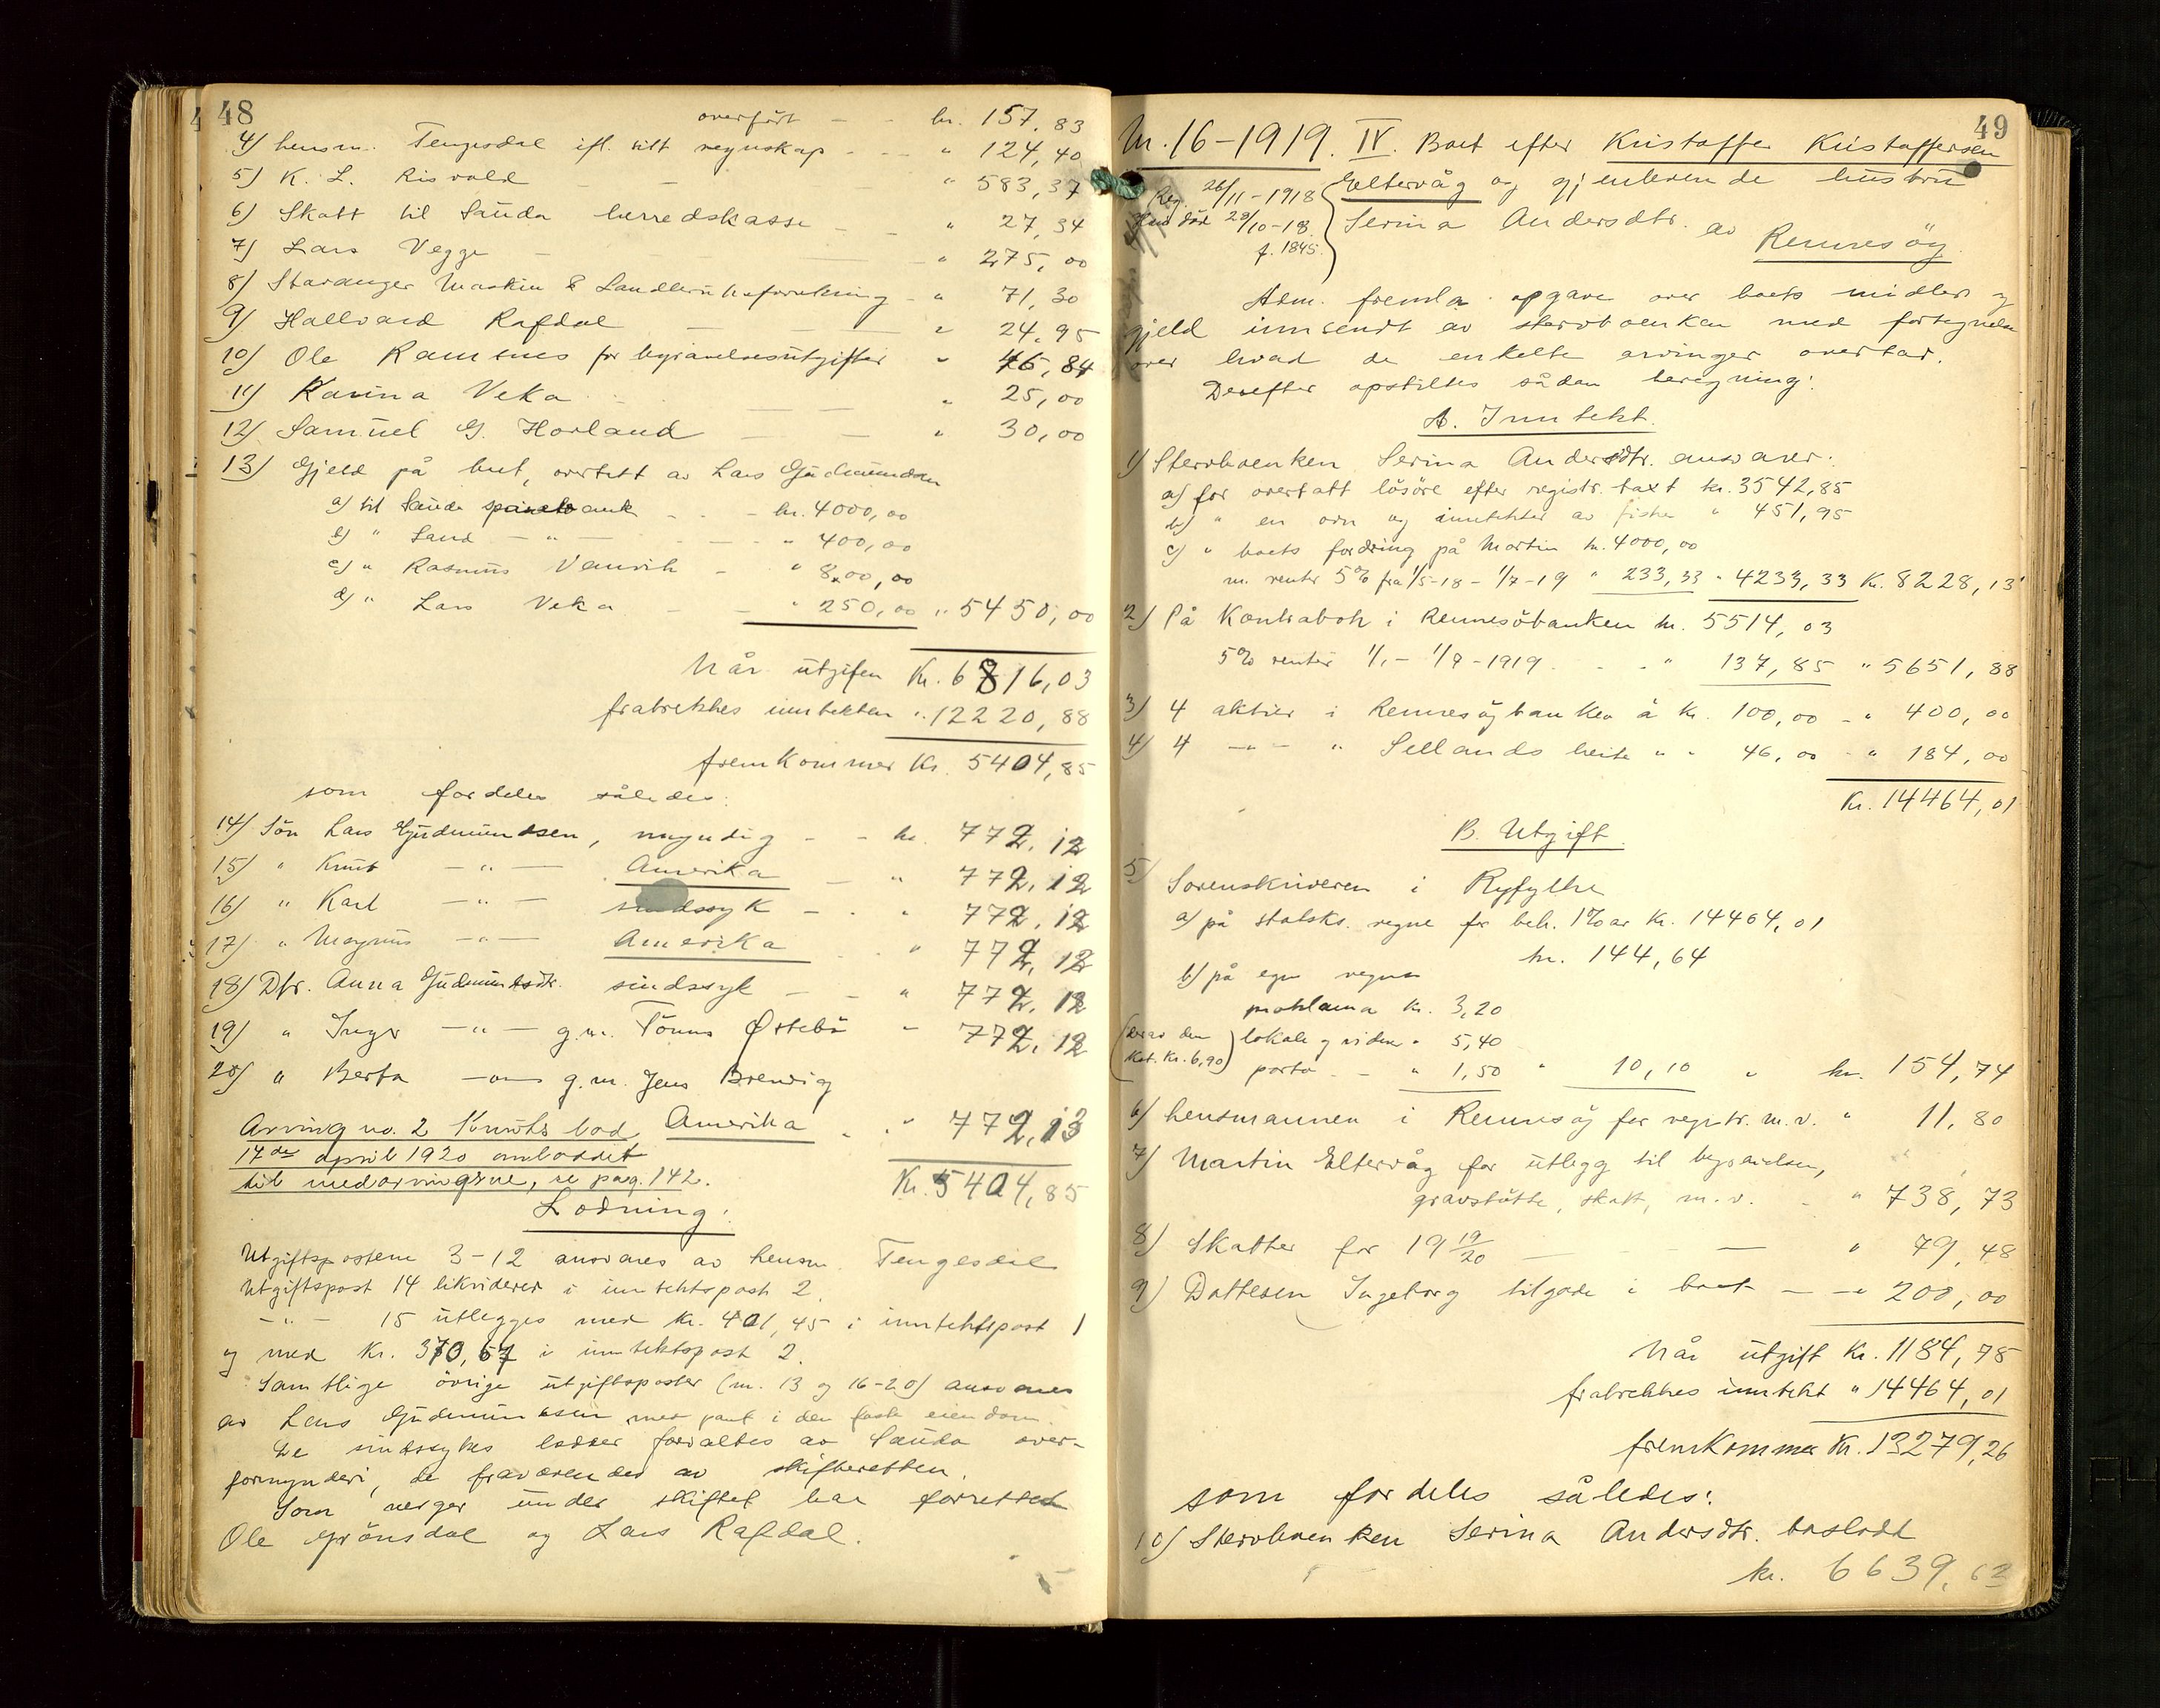 48
overført - - kr. 157,83
4) Lensm. Tengesdal ifl. sitt regnskap - - " 124,40
5) K. L. Risvold - - " 583,37
6) Skatt til Sauda herredskasse - - " 27,34
7) Lars Vegge - - " 275,00
8) Stavanger Maskin & Landbruksforretning - " 71,30
9) Hallvard Rafdal - - " 24,95
10) Ole Ramsnes for begravelsesutgifter " 46,84
11) Karina Veka - - " 25,00
12) Samuel G. Hovland - - " 30,00
13) Gjeld på bruk, overtatt av Lars Gudmundsen
a) til Sauda sparebank - - - kr. 4000,00
b) " Sand - " - - - " 400,00
c) " Rasmus - " 800,00
d) " Lars Veka - - " 250,00 " 5450,00
Når utgifen Kr. 6816,03
fratrekkes inntekten " 12220,88
fremkommer Kr. 5404,85
som fordeles således:
14) Søn Lars Gudmundsen, myndig - - kr. 772,12
15) " Knut - " - Amerika - " 772,12
16) " Karl - " - sindssyk - - " 772,12
17) " Magnus - " - Amerika - - " 772,12
18) Dtr. Anna Gudmundsdtr. sindssyk - - " 772,12
19) " Inger - " - g.m. Tönnes Østebö " 772,12
20) " Berta - " - g.m. Jens Brevig
Amerika - - " 772,13
Arving no. 2 Knuts lod
14de april 1920 omloddet
til medarvingene, se pag. 142.
Kr. 5404,85
Lodning:
Utgiftspostene 3-12 ansvares av lensm. Tengesdal
Utgiftspost 14 likviderer i inntektspost 2.
- " - 15 utlegges med Kr. 401,45 i inntektspost 1
og med Kr. 370,67 i inntektspost 2.
Samtlige övrige utgiftsposter (nr. 13 og 16-20) ansvares
av Lars Gudmundsen med pant i den faste eiendom.
De sindssykes lodder forvaltes av Sauda over-
formynderi, de fraværendes av skifteretten.
Som verger under skiftet har forrettet
Ole Grönsdal og Lars Rafdal.
49
Nr. 16-1919. IV. Boet efter Kristoffer Kristoffersen
Reg. 26/11-1918 Eltervåg og gjenlevende hustru
Han död 28/10-18 Serina Andersdtr. av Rennesöy.
f. 1845.
Adm. fremla opgave over boets midler og
gjeld innsendt av stervboenken med fortegnelse
over hvad de enkelte arvinger overtar.
Derefter opstilles sådan beregning:
A. Inntekt.
1) Stervboenken Serina Andersdtr. ansvarer:
a) for overtatt lösöre efter registr. taxt kr. 3542,85
b) " en orv og inntekter av fiske " 451,95
c) " boets fordring på Martin kr. 4000,00
m. renter 5% fra 1/5-18 - 1/7-19 " 233,33 " 4233,33 Kr. 8228,13
2) På Kontrabok i Rennesöbanken kr. 5514,03
5% renter 1/1 - 1/7-1919 - - " 137,85 " 5651,88
3) 4 aktier i Rennesöybanken à Kr. 100,00 - " 400,00
4) 4 - " - " Sellands heite " " 46,00 - " 184,00
Kr. 14464,01
B. Utgift.
5) Sorenskriveren i Ryfylke
a) på statsks. regne for beh. 1% av Kr. 14464,01
kr. 144,64
b) på egne vegne
proklama Kr. 3,20
(derav den lokale og vidner " 5,40
Kst. Kr. 6,90) porto - - " 1,50 " 10,10 " kr. 154,74
6) Lensmannen i Rennesöy for registr. m.v. " 11,80
7) Martin Eltervåg for utlegg til begravelsen,
gravstötte, skatt, m.v. - " 738,73
8) Skatter for 1919/20 - - " 79,48
9) Datteren Ingeborg tilgode i boet - - " 200,00
Når utgift Kr. 1184,75
fratrekkes inntekt " 14464,01
fremkommer Kr. 13279,26
som fordeles således:
10) Stervboenken Serina Andersdtr. boslodd
kr. 6639,63